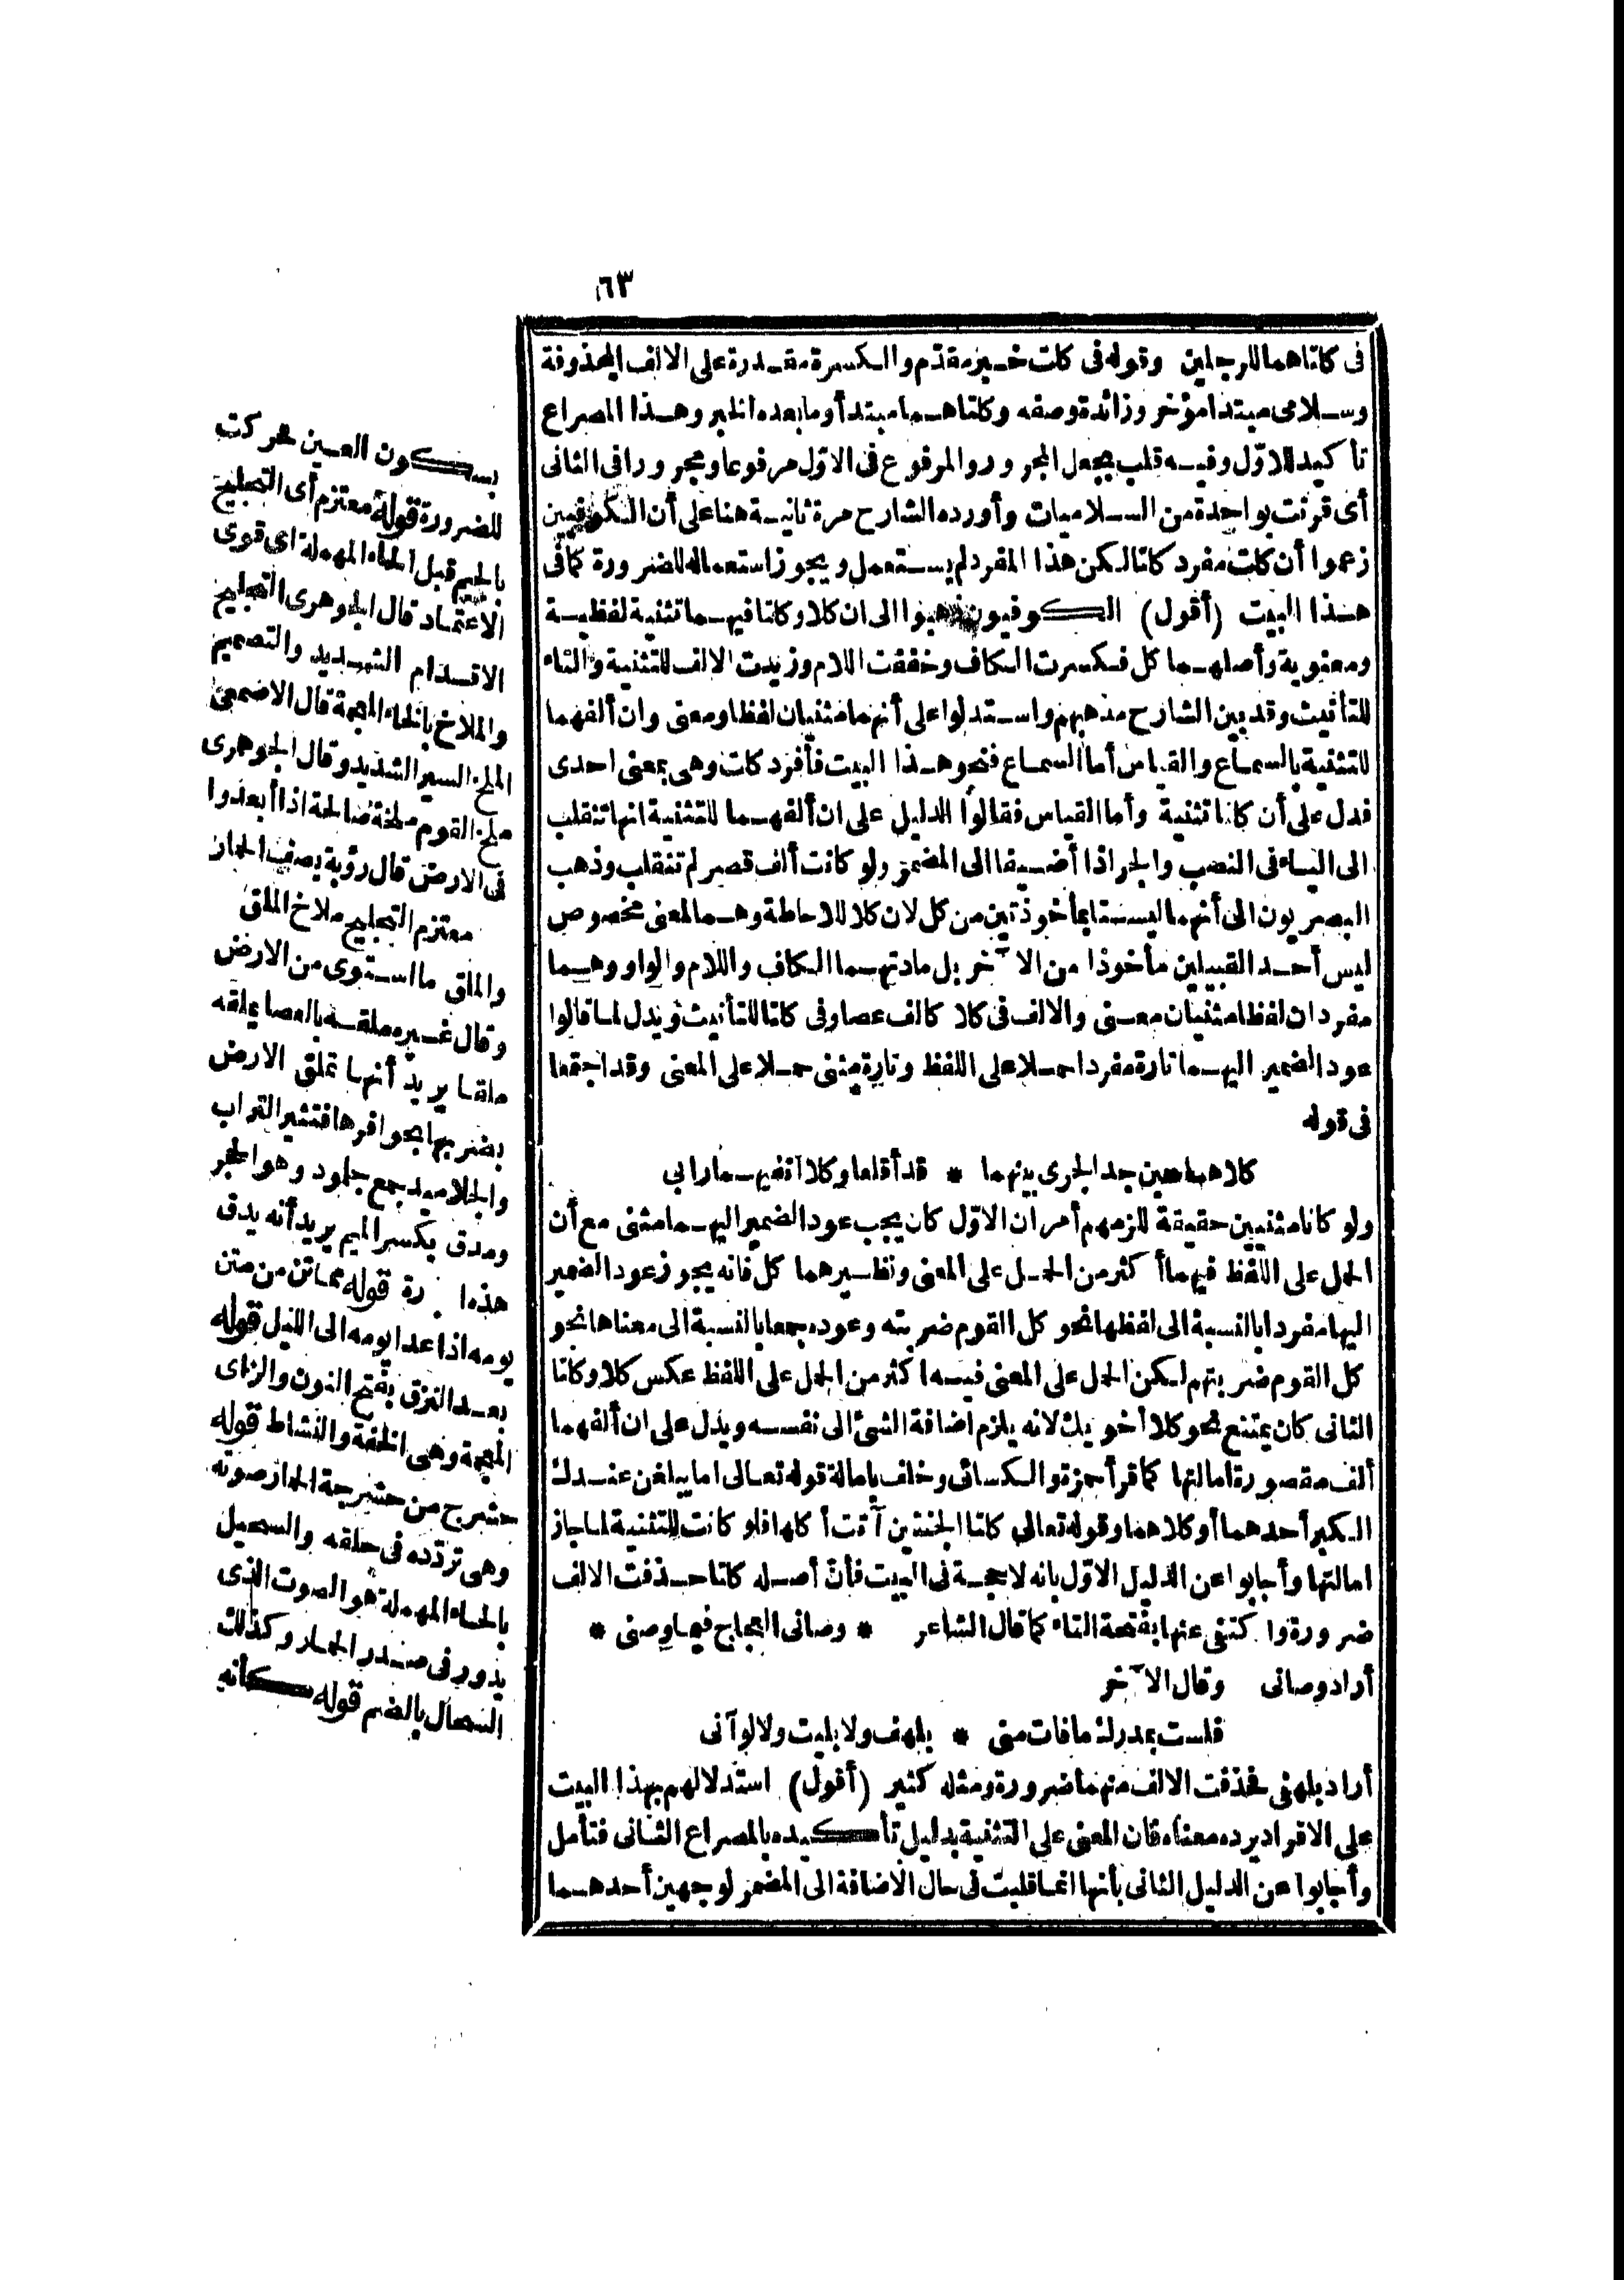 ٦٣
فى كلتاهما للرجلين وقوله فى كلت خبر مقدم والكسرة مقدرة على الالف المحذوفة
وسلامى مبتدا مؤخر وزائدة وصفه وكلتاهما مبتدأ وما بعده الخبر وهذا المصراع
تأكيد للاول وفيه قلب بجعل المجرور والمرفوع فى الاول مرفوعا ومجرورا فى الثانى
أى قرنت بواحدة من السلاميات وأورده الشارح مرة ثانية هنا على أن الكوفيين
زعموا أن كلت مفرد كلتا لكن هذا المفرد لم يستعمل ويجوز استعماله للضرورة كما فى
هذا البيت (أقول) الكوفيون ذهبوا الى ان كلا وكلتا فيهما تثنية لفظية
ومعنوية وأصلهما كل فكسرت الكاف وخففت اللام وزيدت الالف للتثنية والتاء
للتأنيث وقد بين الشارح مذهبهم واستدلوا على أنهما مثنيان لفظا ومعنى وان ألفهما
للتثنية بالسماع والقياس أما السماع فنحو هذا البيت فأفرد كلت وهى بمعنى احدى
فدل على أن كلتا تثنية وأما القياس فقالوا الدليل على ان ألفهما للتثنية انها تنقلب
الى الياء فى النصب والجر اذا أضيفا الى المضمر ولو كانت ألف قصر لم تنقلب وذهب
البصريون الى أنهما ليستا بمأخوذتين من كل لان كلا للاحاطة وهما لمعنى مخصوص
ليس أحد القبيلين مأخوذا من الآخر بل مادتهما الكاف واللام والواو وهما
مفردان لفظا مثنيان معنى والالف فى كلا كالف عصا وفى كلتا للتأنيث ويدل لما قالوا
عود الضمير اليهما تارة مفردا حملا على اللفظ وتارة مثنى حملا على المعنى وقد اجتمعا
فى قوله
كلاهما حين جد الجرى بينهما * قد أقلعا وكلا أنفيهما رابى
ولو كانا مثنيين حقيقة للزمهم أمران الاول كان يجب عود الضمير اليهما مثنى مع أن
الحمل على اللفظ فيهما أكثر من الحمل على المعنى ونظيرهما كل فانه يجوز عود الضمير
اليها مفردا بالنسبة الى لفظها نحو كل القوم ضربته وعوده جمعا بالنسبة الى معناها نحو
كل القوم ضربتهم لكن الحمل على المعنى فيه اكثر من الحمل على اللفظ عكس كلا وكلتا
الثانى كان يمتنع نحو كلا أخويك لانه يلزم اضافة الشئ الى نفسه ويدل على ان ألفهما
ألف مقصورة امالتها كما قرأ حمزة والكسائى وخلف بامالة قوله تعالى اما يبلغن عندك
الكبر أحدهما أو كلاهما وقوله تعالى كلتا الجنتين آتت أكلها فلو كانت للتثنية لما جاز
امالتها وأجابوا عن الدليل الاول بانه لا حجة فى البيت فأن أصله كلتا حذفت الالف
ضرورة واكتفى عنها بفتحة التاء كما قال الشاعر * وصانى العجاج فيما وصنى *
أراد وصانى وقال الآخر
فلست بمدرك ما فات منى * بلهف ولا بليت ولا لو آنى
أراد بلهفى فحذفت الالف منهما ضرورة ومثله كثير (أقول) استدلالهم بهذا البيت
على الافراد يرده معناه فان المعنى على التثنية بدليل تأكيده بالمصراع الثانى فتأمل
وأجابوا عن الدليل الثانى بأنها انما قلبت فى حال الاضافة الى المضمر لوجهين أحدهما
بسكون العين حركت
للضرورة قوله معتزم أى التجليح
بالجيم قبل الحاء المهملة اى قوى
الاعتماد قال الجوهرى التجليح
الاقدام الشديد والتصميم
والملاخ بالخاء المعجمة قال الاصمعى
الملخ السير الشديد وقال الجوهرى
ملخ القوم ملخة صالحة اذا أبعدوا
فى الارض قال رؤبة يصف الحمار
معتزم التجليح ملاخ الملق
والملق ما استوى من الارض
وقال غيره ملقه بالعصا يملقه
ملقا يريد أنها تملق الارض
بضربها بحوافرها فتثير التراب
والجلاميد جمع جلمود وهو الحجر
ومدق بكسر الميم يريد أنه يدق
هذه قوله مماتن من متن
يومه اذا عدا يومه الى الليل قوله
بعد النزق بفتح النون والزاى
المعجمة وهى الخفة والنشاط قوله
حشرج من حشرجة الحمار صوته
وهى تردده فى حلقه والسحيل
بالحاء المهملة هو الصوت الذى
يدور فى صدر الحمار وكذلك
السحال بالضم قوله كأنه